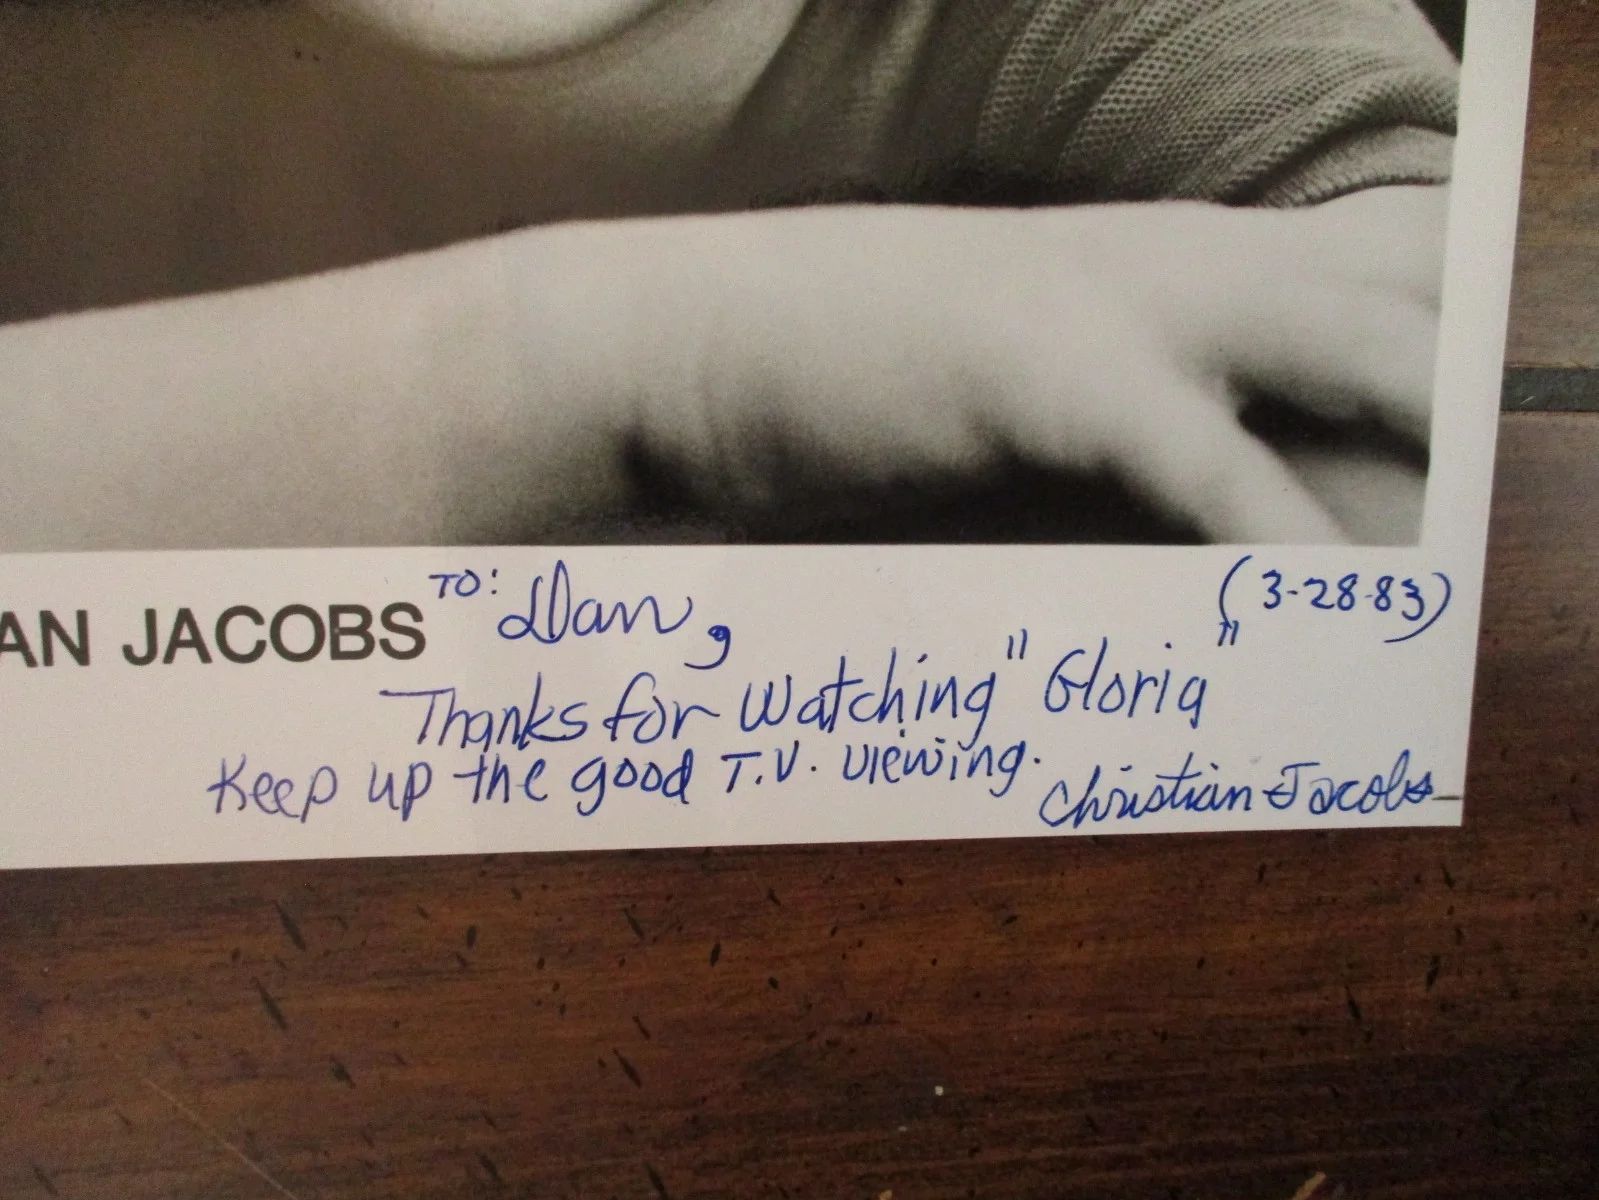 AN JACOBS TO: Dan, (3-28-83)
Thanks for watching "Gloria"
Keep up the good T.V. viewing.
Christian Jacobs